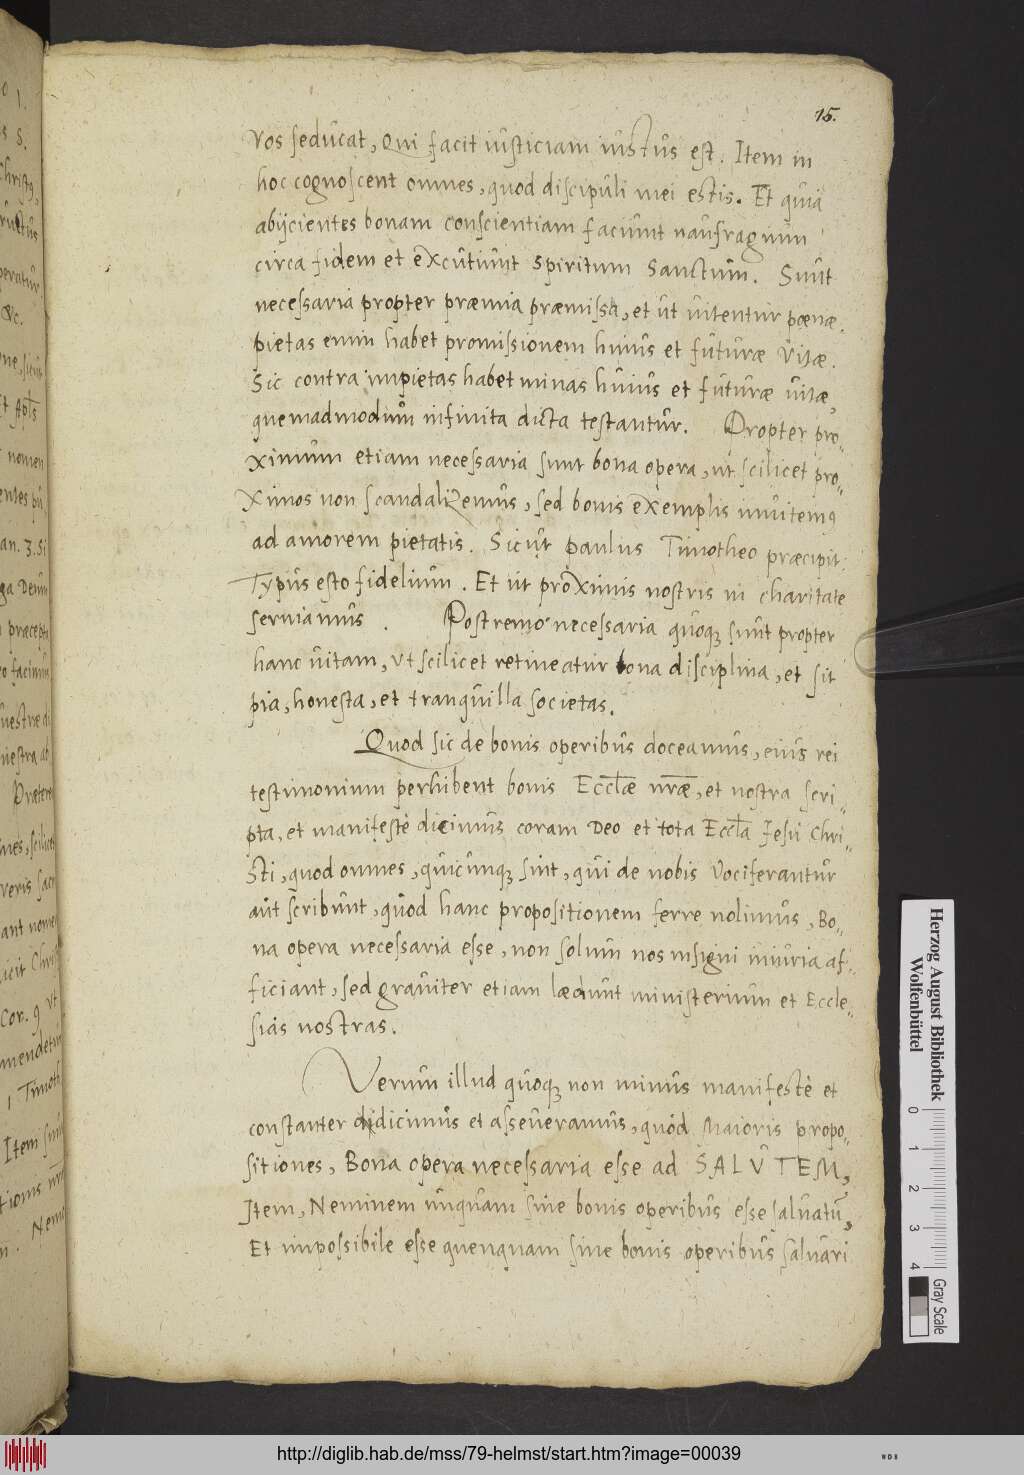 15.
vos seducat, Qui facit iusticiam iustus est. Item in
hoc cognoscent omnes, quod discipuli mei estis. Et quia
abijcientes bonam conscientiam faciunt naufragium
circa fidem et excutiunt Spiritum Sanctum. Sunt
necessaria propter præmia præmissa, et ut uitentur pœnæ.
pietas enim habet promissionem huius et futuræ vitæ.
Sic contra impietas habet minas huius et futuræ uitæ,
quemadmodum infinita dicta testantur. Propter pro-
ximum etiam necessaria sunt bona opera, ut scilicet pro-
ximos non scandalizemus, sed bonis exemplis inuitemus
ad amorem pietatis. Sicut Paulus Timotheo præcipit:
Typus esto fidelium. Et ut proximis nostris in charitate
seruiamus. Postremo necessaria quoq; sunt propter
hanc uitam, ut scilicet retineatur bona disciplina, et sit
pia, honesta, et tranquilla societas.
Quod sic de bonis operibus doceamus, eius rei
testimonium perhibent bonis Eccłæ nræ, et nostra scri-
pta, et manifestè dicimus coram Deo et tota Eccła Jesu Chri-
sti, quod omnes, quicunq; sint, qui de nobis vociferantur
aut scribunt, quod hanc propositionem ferre nolimus, Bo-
na opera necessaria esse, non solum nos insigni iniuria af-
ficiant, sed grauiter etiam lædunt ministerium et Eccle-
sias nostras.
Verum illud quoq; non minus manifestè et
constanter didicimus et asseueramus, quòd Maioris propo-
sitiones, Bona opera necessaria esse ad SALVTEM,
Item, Neminem unquam sine bonis operibus esse saluatū,
Et impossibile esse quenquam sine bonis operibus saluari
Herzog August Bibliothek
Wolfenbüttel
0 1 2 3 4
Gray Scale
http://diglib.hab.de/mss/79-helmst/start.htm?image=00039